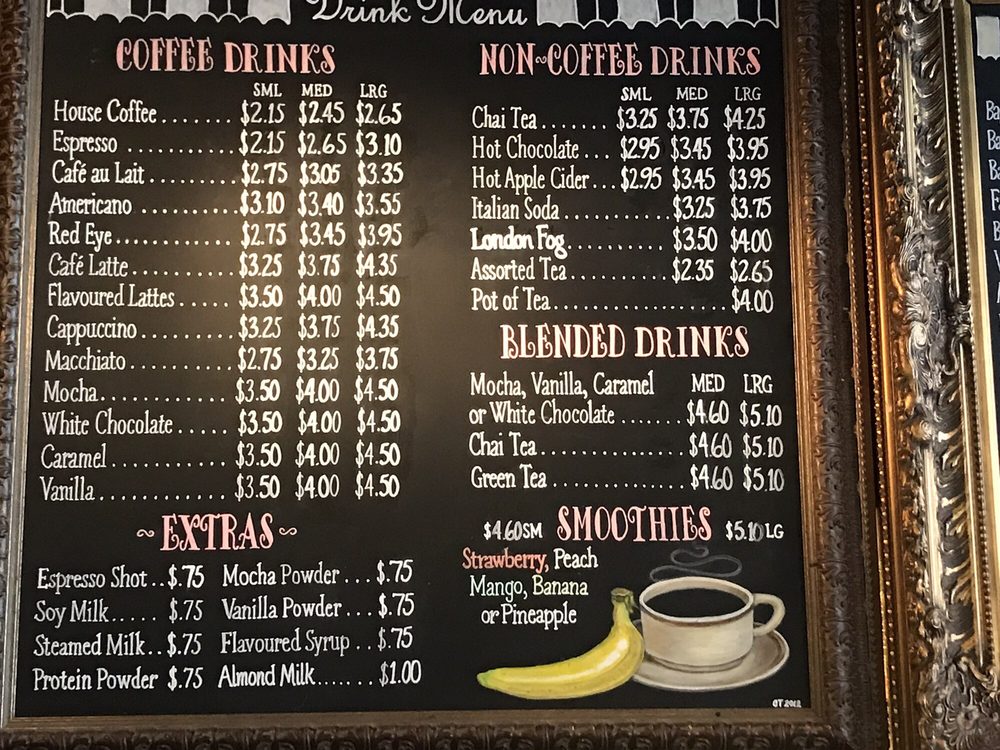 Drink Menu
COFFEE DRINKS
SML MED LRG
House Coffee ....... $2.15 $2.45 $2.65
Espresso ........... $2.15 $2.65 $3.10
Café au Lait .......... $2.75 $3.05 $3.35
Americano ........... $3.10 $3.40 $3.55
Red Eye............ $2.75 $3.45 $3.95
Café Latte........... $3.25 $3.75 $4.35
Flavoured Lattes ..... $3.50 $4.00 $4.50
Cappuccino .......... $3.25 $3.75 $4.35
Macchiato ........... $2.75 $3.25 $3.75
Mocha............. $3.50 $4.00 $4.50
White Chocolate ..... $3.50 $4.00 $4.50
Caramel ........... $3.50 $4.00 $4.50
Vanilla ............ $3.50 $4.00 $4.50
~EXTRAS~
Espresso Shot .. $.75 Mocha Powder ... $.75
Soy Milk..... $.75 Vanilla Powder ... $.75
Steamed Milk.. $.75 Flavoured Syrup .. $.75
Protein Powder $.75 Almond Milk....... $1.00
NON~COFFEE DRINKS
SML MED LRG
Chai Tea ....... $3.25 $3.75 $4.25
Hot Chocolate ... $2.95 $3.45 $3.95
Hot Apple Cider... $2.95 $3.45 $3.95
Italian Soda .......... $3.25 $3.75
London Fog.......... $3.50 $4.00
Assorted Tea.......... $2.35 $2.65
Pot of Tea................. $4.00
BLENDED DRINKS
Mocha, Vanilla, Caramel MED LRG
or White Chocolate ...... $4.60 $5.10
Chai Tea.............. $4.60 $5.10
Green Tea ............. $4.60 $5.10
$4.60SM SMOOTHIES $5.10LG
Strawberry, Peach
Mango, Banana
or Pineapple